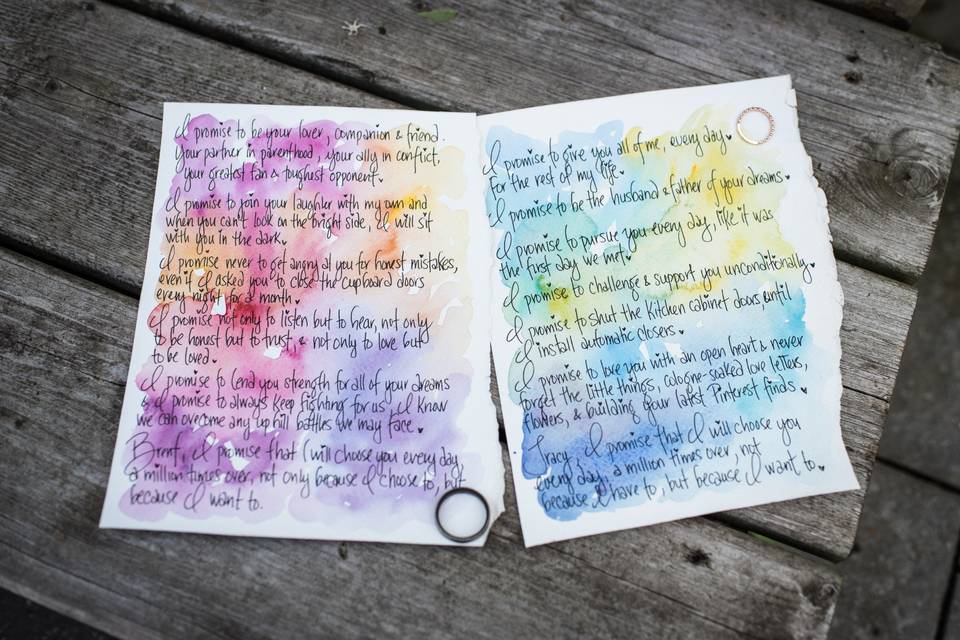 I promise to be your lover, companion & friend.
Your partner in parenthood, your ally in conflict,
your greatest fan & toughest opponent.
I promise to join your laughter with my own and
when you can't look on the bright side, I will sit
with you in the dark.
I promise never to get angry at you for honest mistakes,
even if I asked you to close the cupboard doors
every night for a month.
I promise not only to listen but to hear, not only
to be honest but to trust, & not only to love but
to be loved.
I promise to lend you strength for all of your dreams
& I promise to always keep fighting for us. I know
we can overcome any up hill battles we may face.
Brent, I promise that I will choose you every day,
a million times over, not only because I choose to, but
because I want to.
I promise to give you all of me, every day
for the rest of my life.
I promise to be the husband & father of your dreams.
I promise to pursue you every day, like it was
the first day we met.
I promise to challenge & support you unconditionally.
I promise to shut the kitchen cabinet doors, until
I install automatic closers.
I promise to love you with an open heart & never
forget the little things, cologne-soaked love letters,
flowers, & building your latest Pinterest finds.
Tracy, I promise that I will choose you
every day, a million times over, not
because I have to, but because I want to.